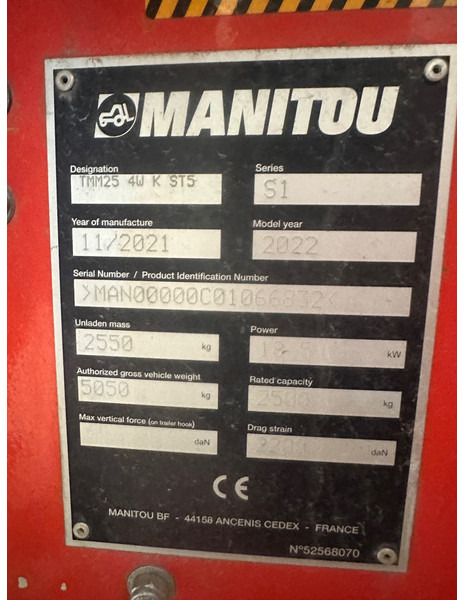 MANITOU
Designation Series
TMM25 4W K ST5 S1
Year of manufacture Model year
11/2021 2022
Serial Number / Product Identification Number
>MAN00000C01066832<
Unladen mass Power
2550 kg 18 kW
Authorized gross vehicle weight Rated capacity
5050 kg 2500 kg
Max vertical force (on trailer hook) Drag strain
daN daN
CE
MANITOU BF - 44158 ANCENIS CEDEX - FRANCE
N°52568070